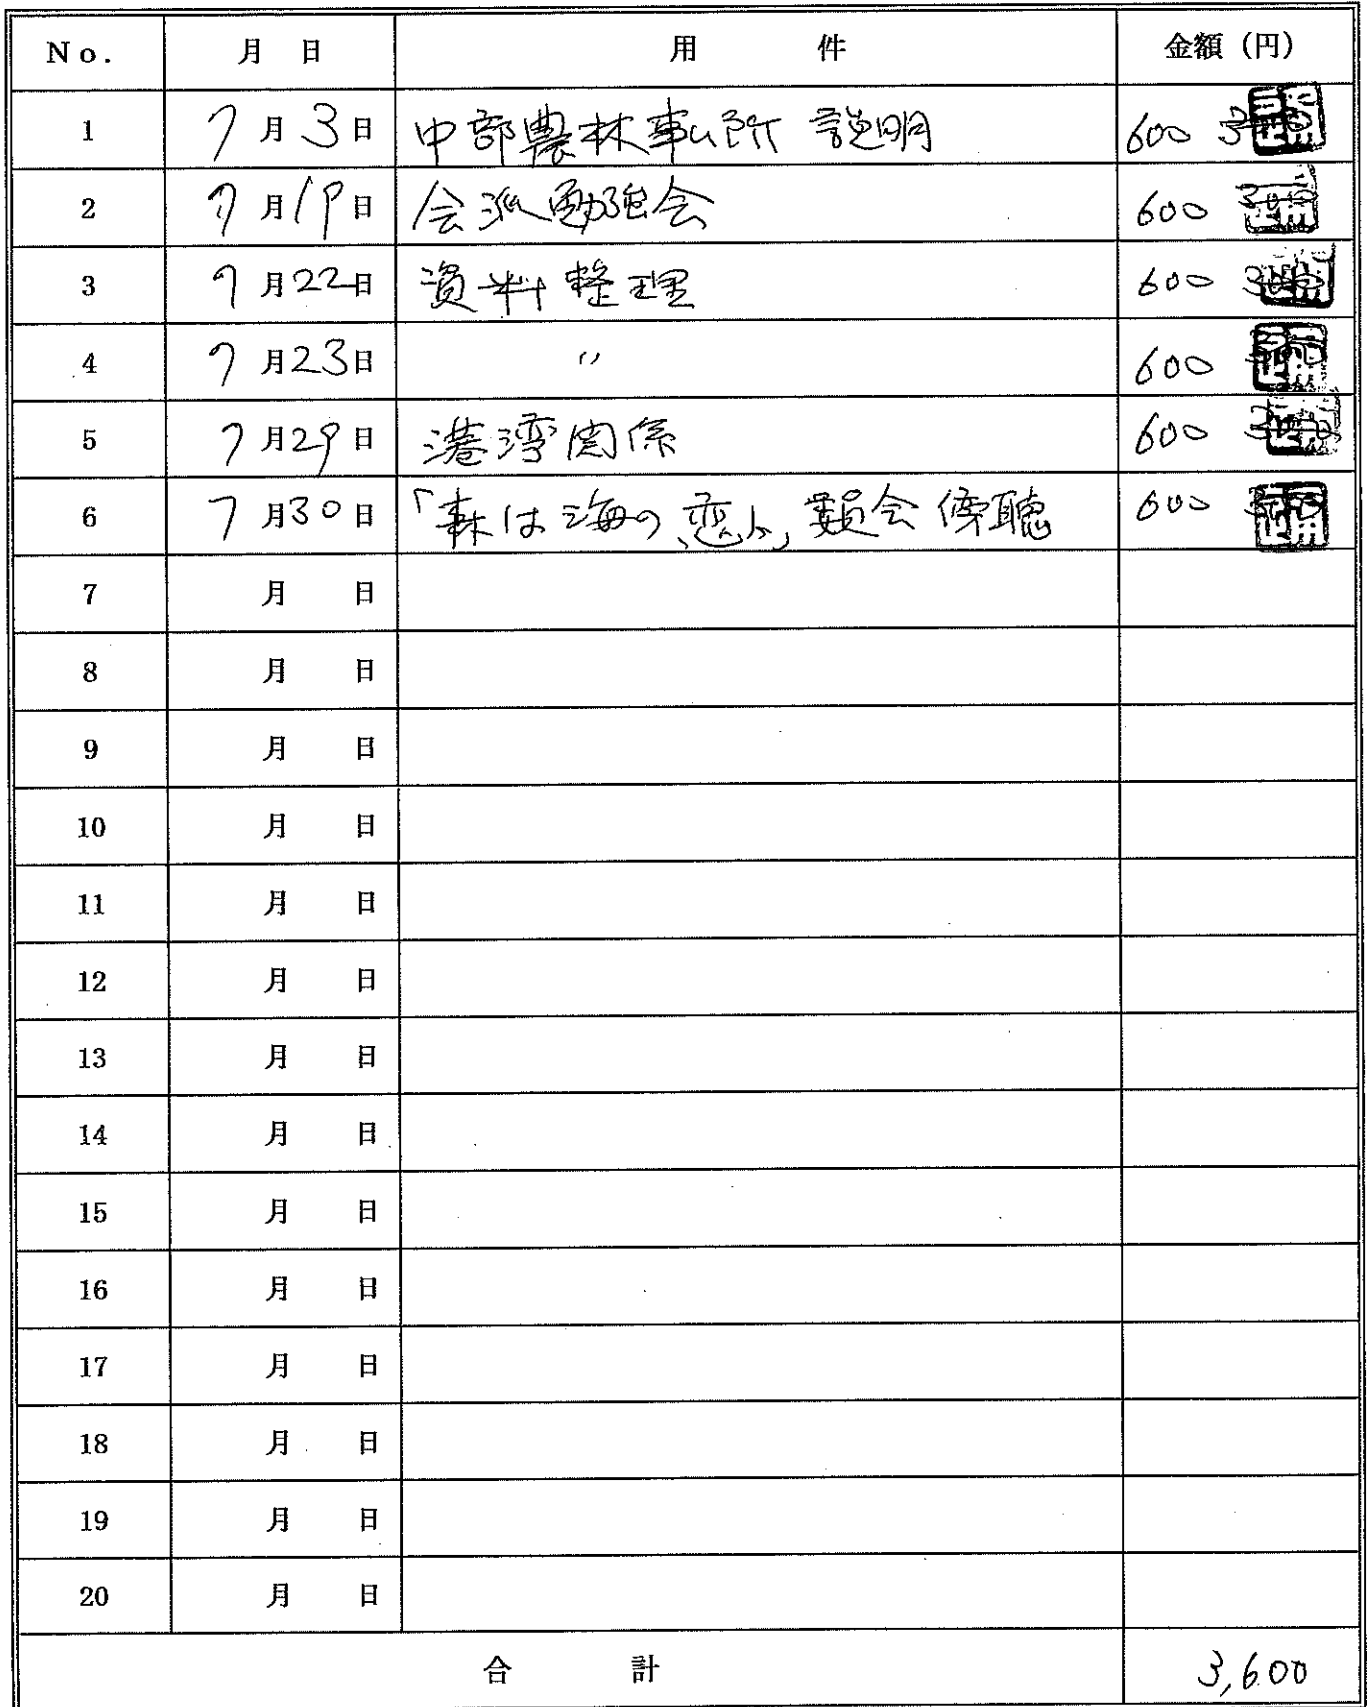 No. 月 日 用 件 金額（円）
1 7月3日 中部農林事ム所 説明 600 300
2 7月19日 会派勉強会 600 300
3 7月22日 資料整理 600 300
4 7月23日 〃 600 300
5 7月29日 港湾関係 600 300
6 7月30日 「森は海の恋人」委員会 傍聴 600 300
7 月 日
8 月 日
9 月 日
10 月 日
11 月 日
12 月 日
13 月 日
14 月 日
15 月 日
16 月 日
17 月 日
18 月 日
19 月 日
20 月 日
合 計 3,600